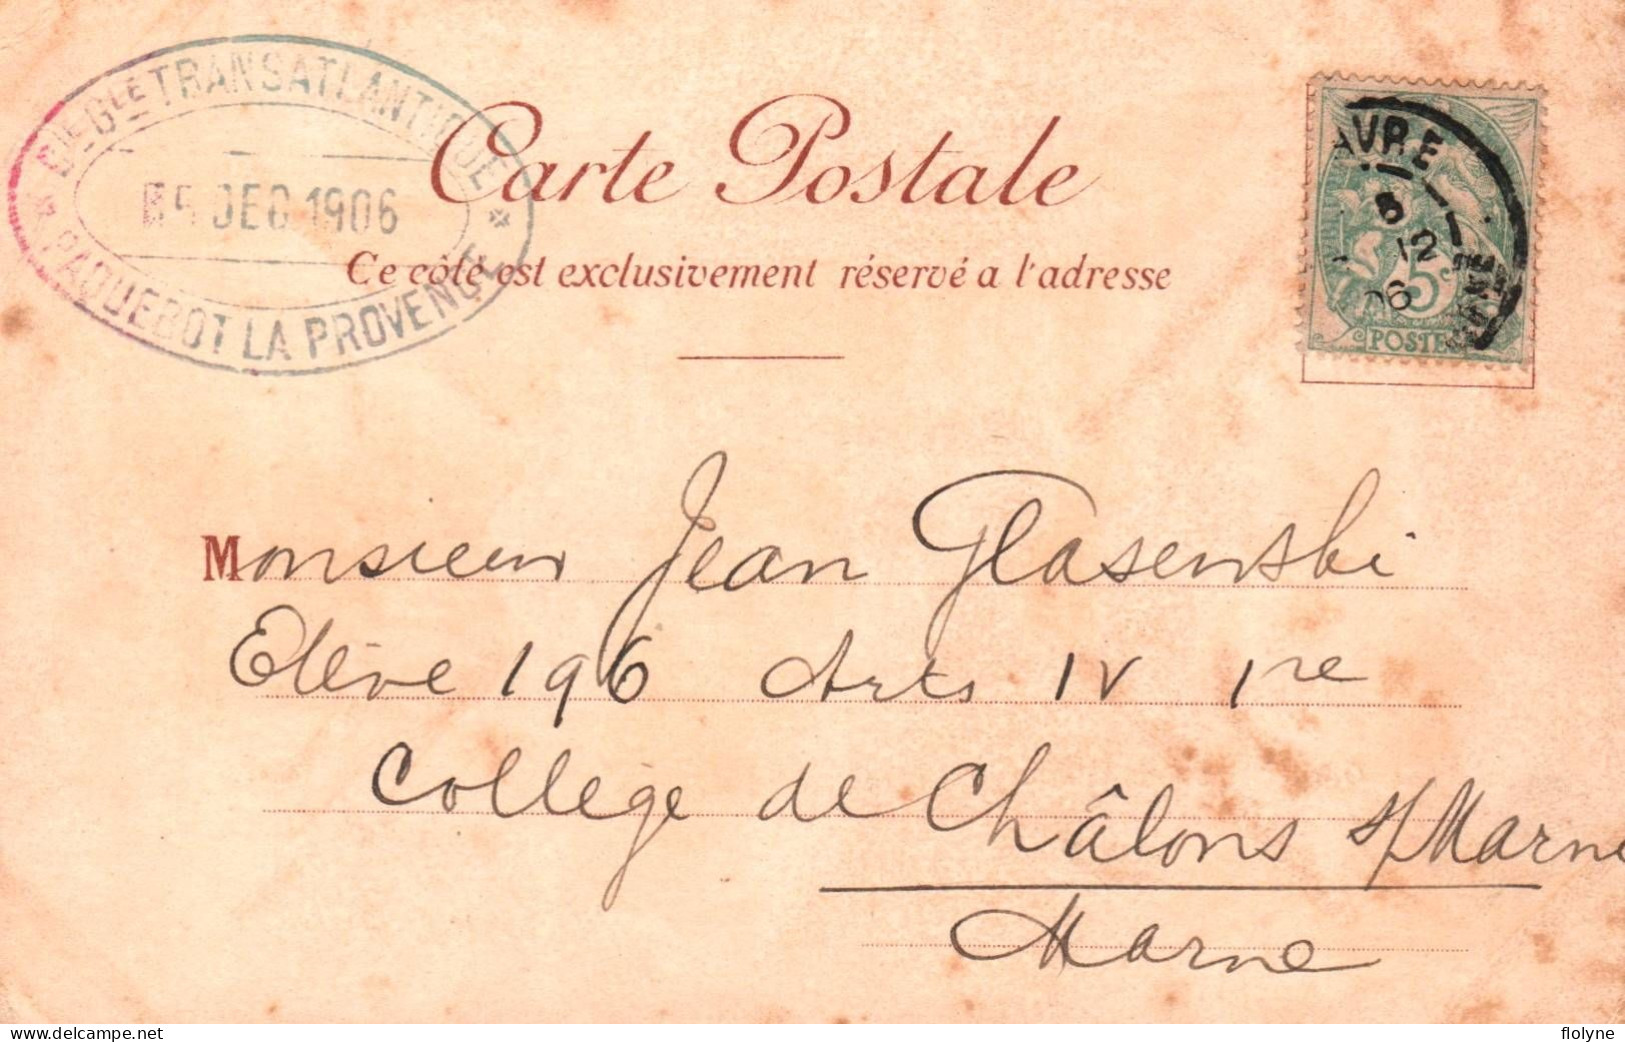 CIE GLE TRANSATLANTIQUE
DEC 1906
PAQUEBOT LA PROVENCE
Carte Postale
Ce côté est exclusivement réservé a l'adresse
AVRE
12
06
5
POSTES
Monsieur Jean Glasenski
Elève 196 Arts IV 1re
College de Châlons s/Marne
Marne
www.delcampe.net
flolyne